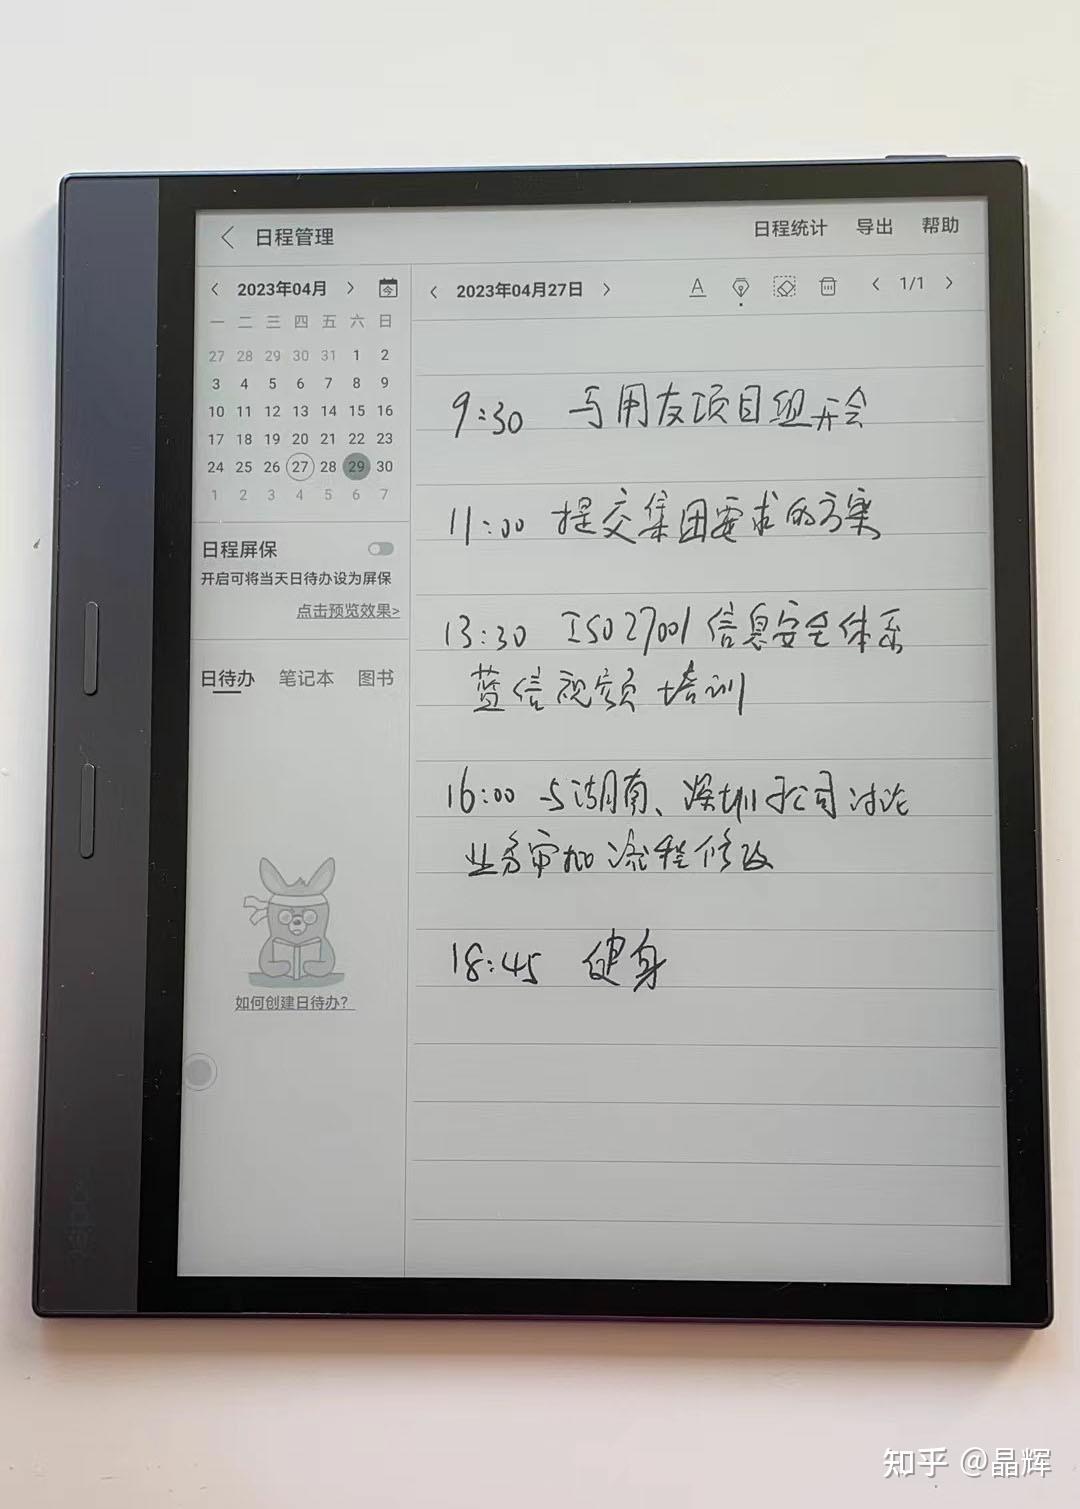 日程管理
日程统计 导出 帮助
2023年04月
今
一 二 三 四 五 六 日
27 28 29 30 31 1 2
3 4 5 6 7 8 9
10 11 12 13 14 15 16
17 18 19 20 21 22 23
24 25 26 27 28 29 30
1 2 3 4 5 6 7
日程屏保
开启可将当天日待办设为屏保
点击预览效果>
日待办 笔记本 图书
如何创建日待办？
2023年04月27日
A
1/1
9:30 与用友项目组开会
11:00 提交集团要求的方案
13:30 ISO27001信息安全体系
蓝信视频培训
16:00 与湖南、深圳子公司讨论
业务审批流程修改
18:45 健身
知乎 @晶辉